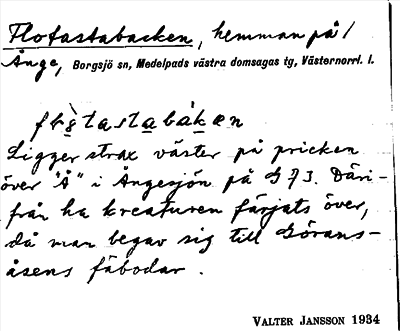 Flotastabacken, hemman på /
Ånge, Borgsjö sn, Medelpads västra domsagas tg, Västernorrl. l.
Ligger strax väster på pricken
över "Å" i Ångesjön på G 73. Däri-
från ha kreaturen färjats över,
då man begav sig till Görans-
åsens fäbodar.
VALTER JANSSON 1934